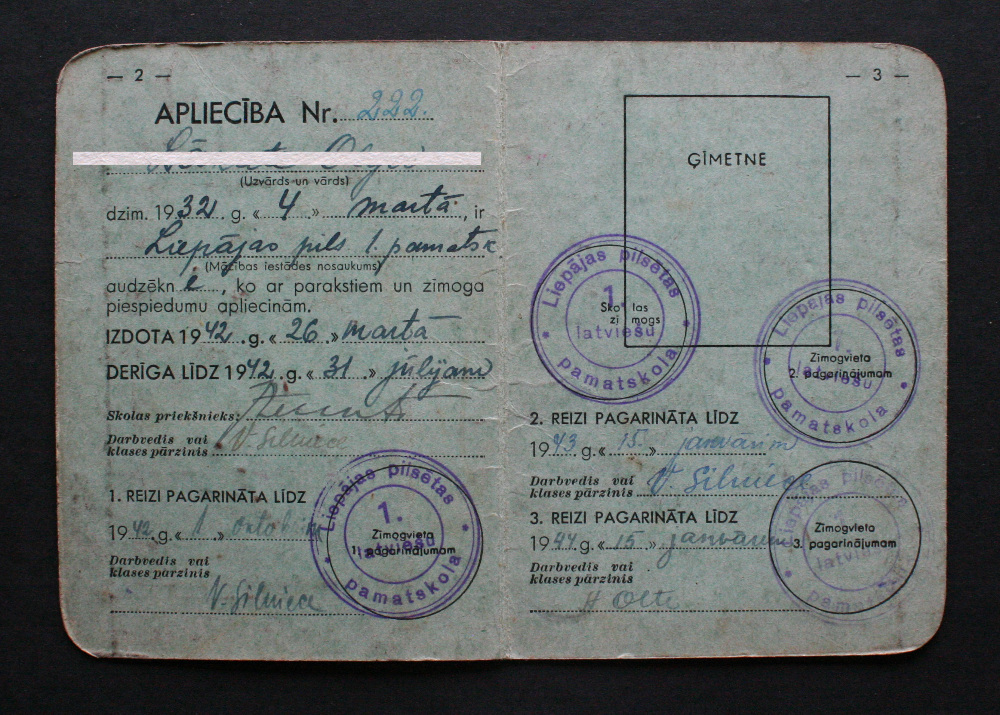 — 2 —
APLIECĪBA Nr. 222.
(Uzvārds un vārds)
dzim. 1932. g. « 4 » martā, ir
Liepājas pils 1. pamatsk
(Mācības iestādes nosaukums)
audzēkn e, ko ar parakstiem un zīmoga
piespiedumu apliecinām.
IZDOTA 1942 .g. « 26 » martā
DERĪGA LĪDZ 1942. .g. « 31 .» jūlijam
Skolas priekšnieks:
Darbvedis vai
klases pārzinis V. Silniece
1. REIZI PAGARINĀTA LĪDZ
1942 .g. « 1 »
Darbvedis vai
klases pārzinis
V. Silniece
Liepājas pilsētas
1.
latviešu
pamatskola
Zīmogvieta
1. pagarinājumam
— 3 —
ĢĪMETNE
Liepājas pilsētas
1.
latviešu
pamatskola
Skolas
zīmogs
Liepājas pilsētas
latviešu
pamatskola
Zīmogvieta
2. pagarinājumam
2. REIZI PAGARINĀTA LĪDZ
1943 .g. « 15. » janvārim
Darbvedis vai
klases pārzinis V. Silniece
3. REIZI PAGARINĀTA LĪDZ
1944 .g. « 15 .» janvārim
Darbvedis vai
klases pārzinis
Liepājas pilsētas
latviešu
pamatskola
Zīmogvieta
3. pagarinājumam